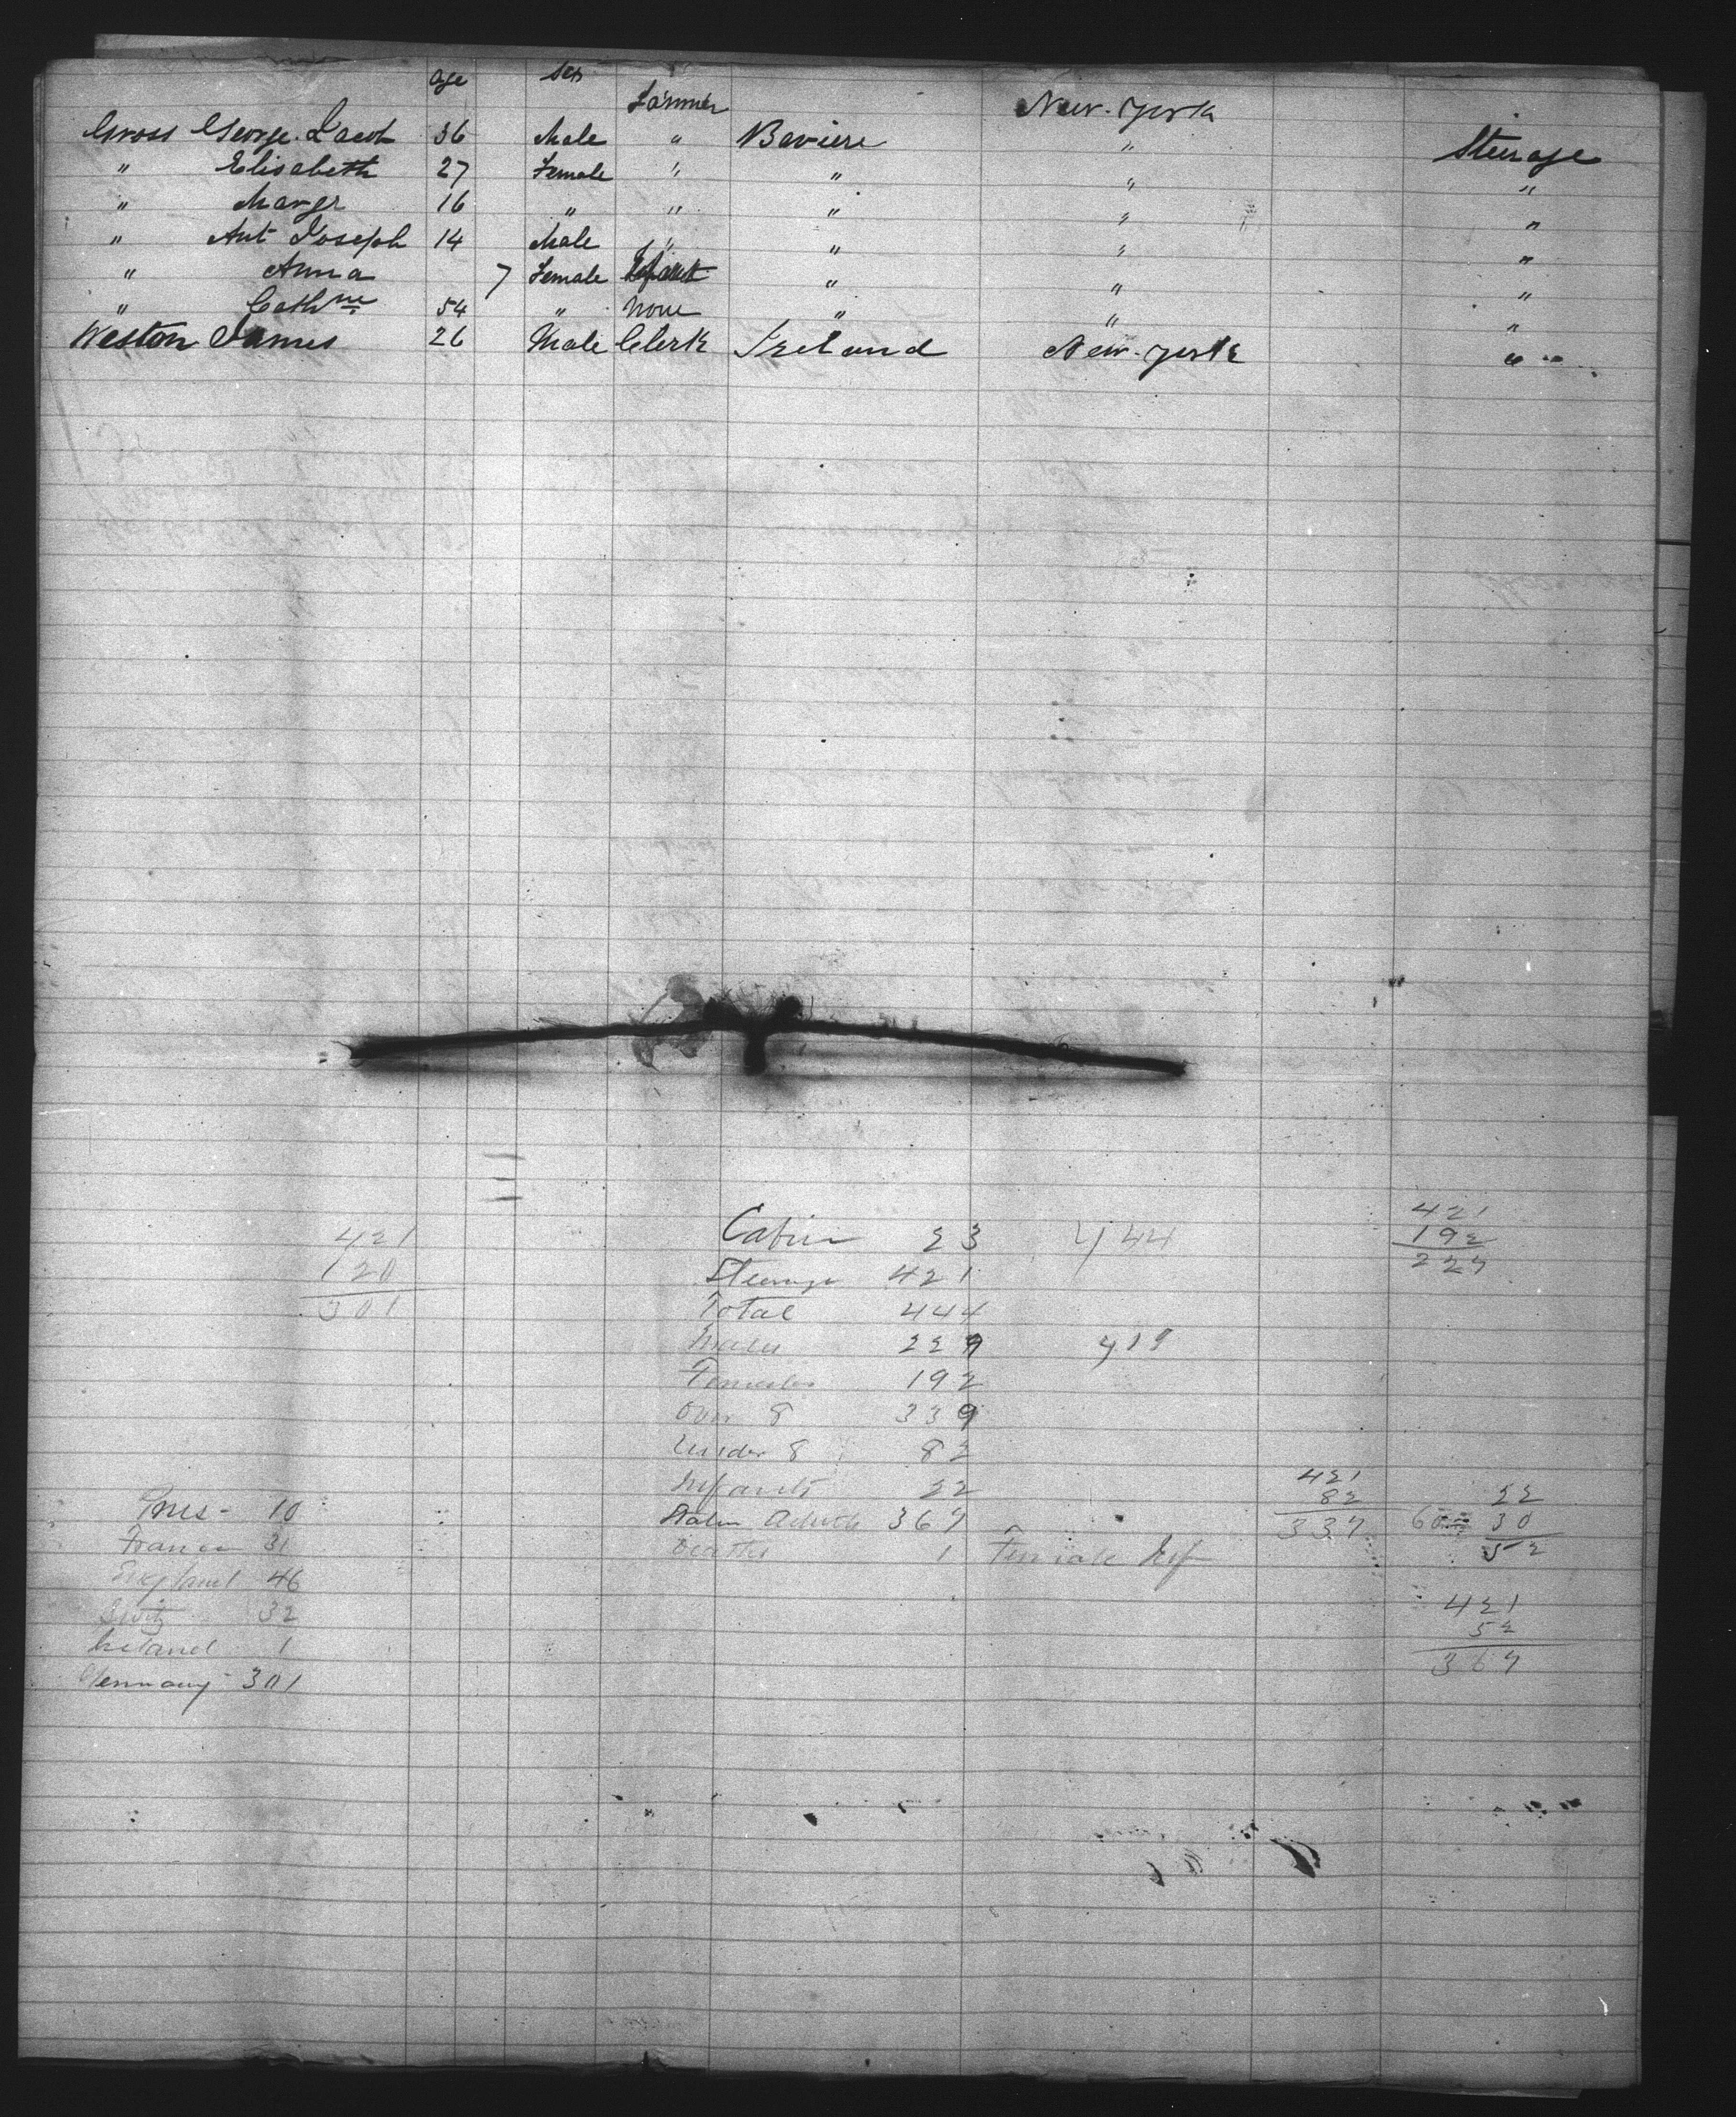 age Sex
Farmer New-York
Gross George Jacob 36 Male " Baviere " Steerage
" Elisabeth 27 Female " " " "
" Margr 16 " " " " "
" Ant Joseph 14 Male " " " "
" Anna 7 Female Infant " " "
" Cathne 54 " None " " "
Weston James 26 Male Clerk Ireland New-York "
421
120
301
Cabin 23 444
Steerage 421
Total 444
Males 229 419
Females 192
Over 8 339
Under 8 82
Infants 22
Statu Adults 369
Deaths 1 Female Inf
421
192
229
421
82
339
22
60 30
52
421
52
369
10
France 31
England 46
Switz 32
Ireland 1
Germany 301